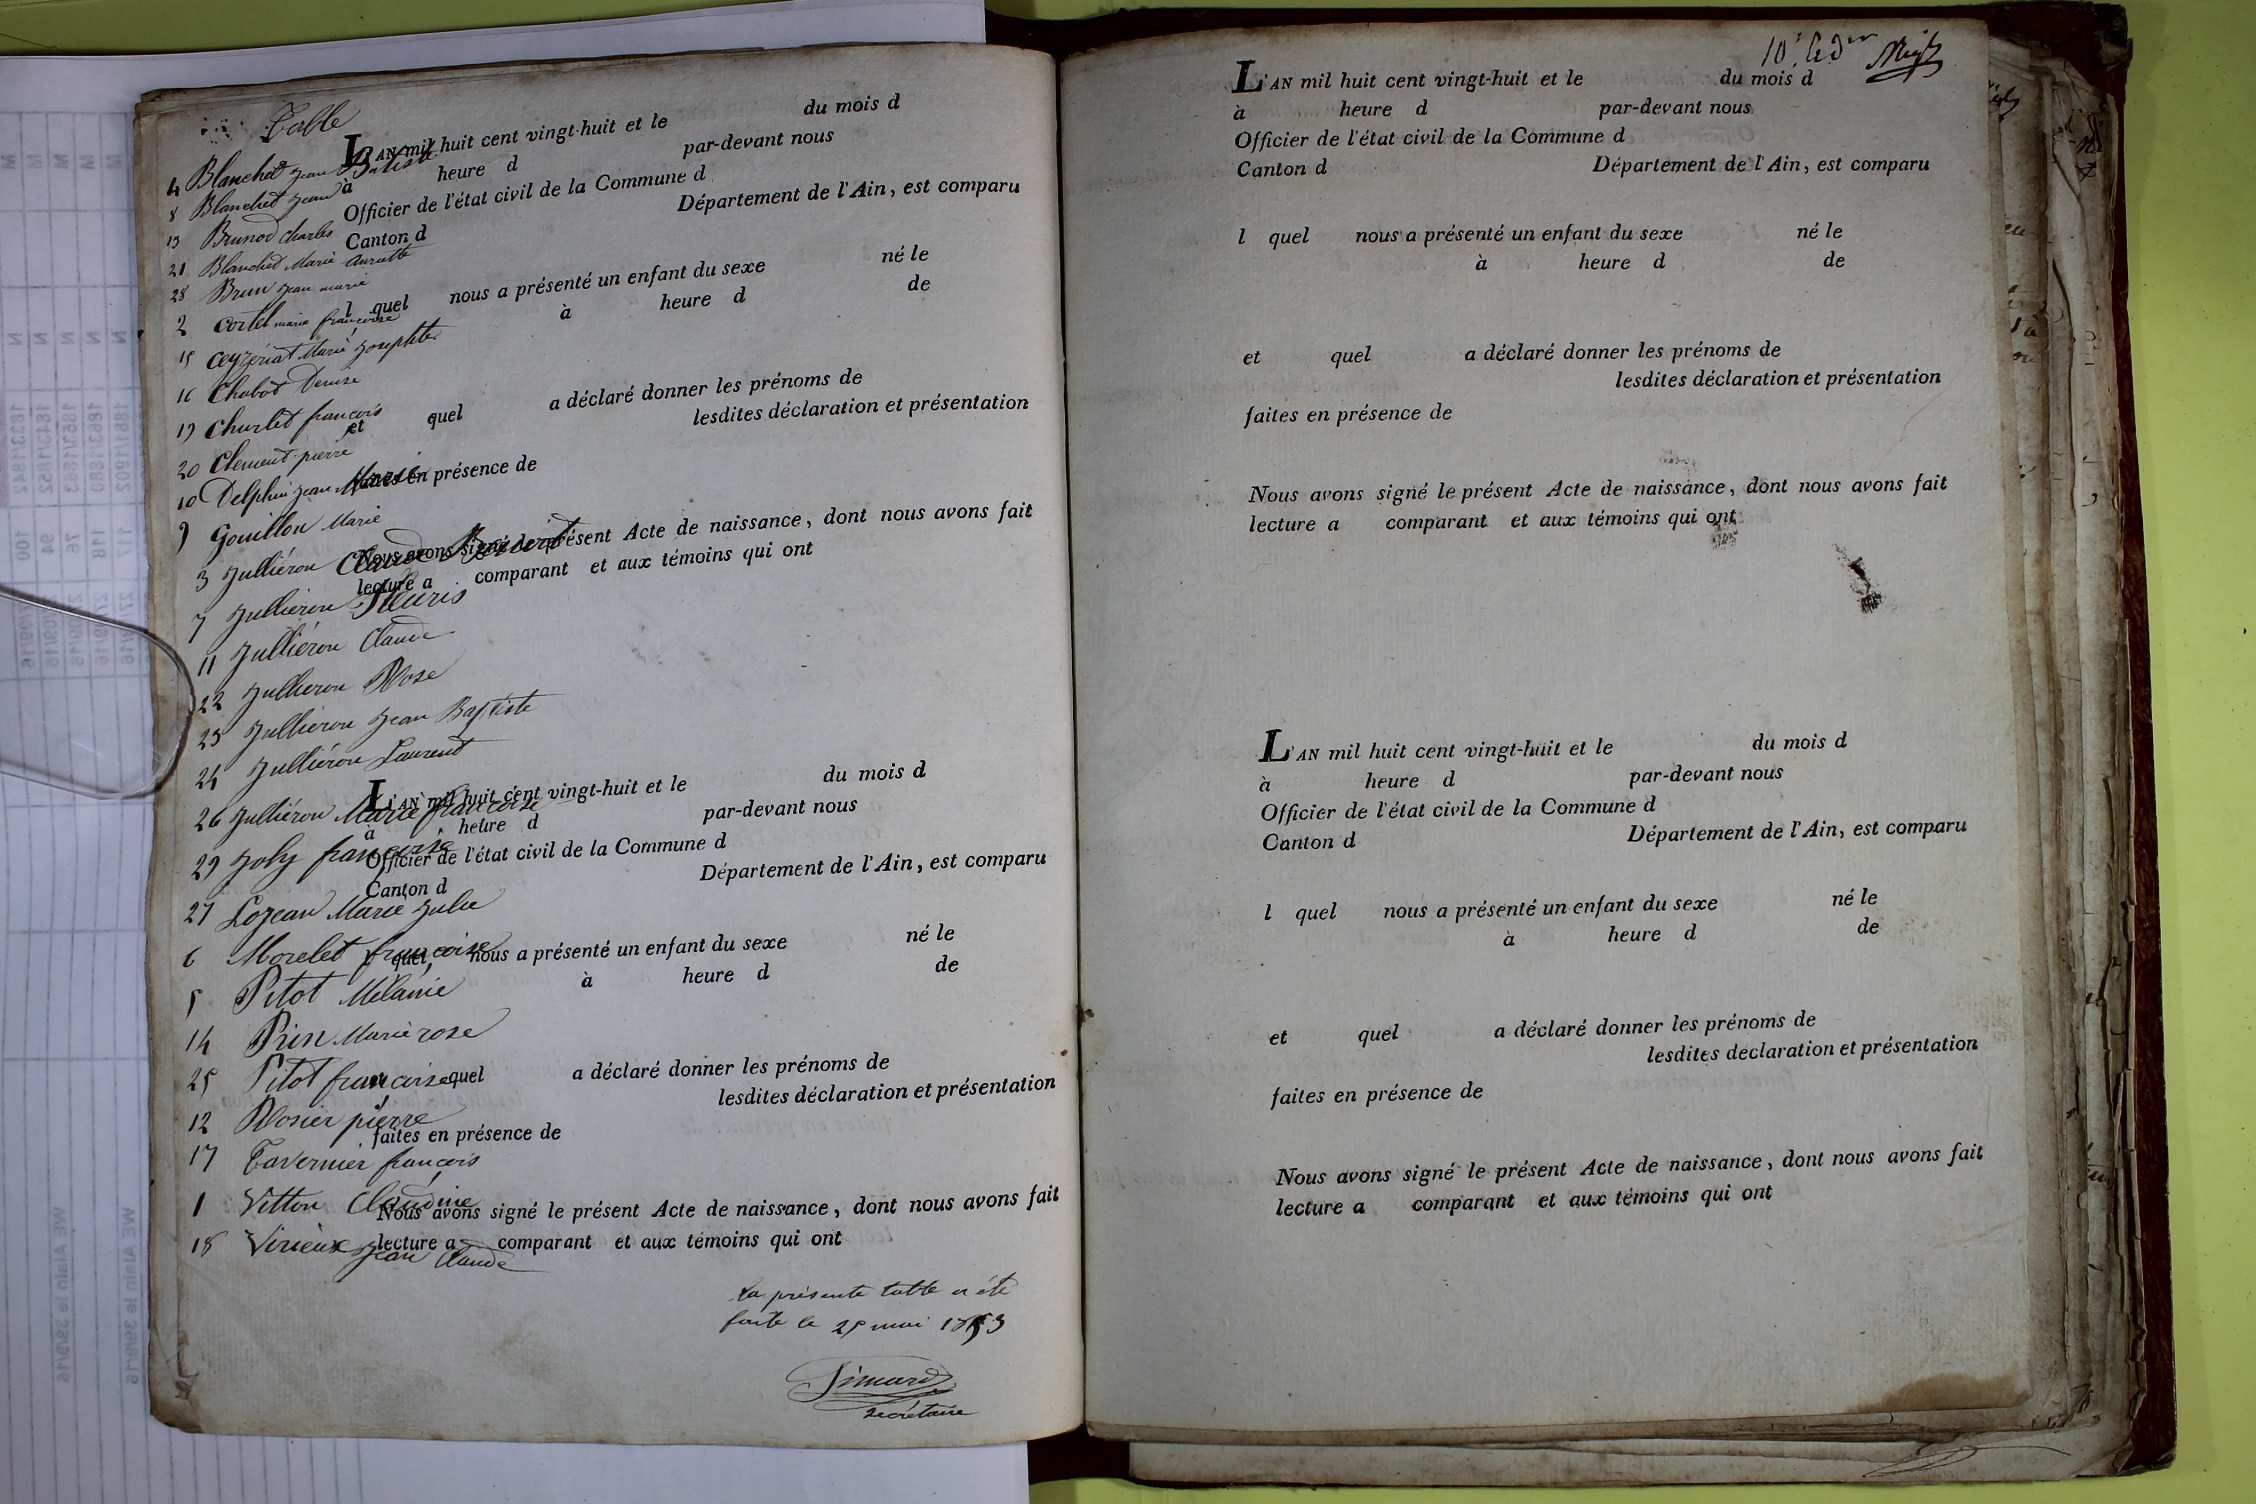 Table
4 Blanchet Jean Batiste
8 Blanchet Jean
13 Brunod Charles
21 Blanchet Marie
28 Brun Jean marie
2 Cortel marie françoise
15 Ceyzériat Marie Josephte
16 Chabot Denise
19 Churlet françois
20 Clement pierre
10 Delphin Jean Marie
9 Gouillon Marie
3 Julliéron Claude Benoit
7 Julliéron Fleuris
11 Julliéron Claude
22 Julliéron Rose
23 Julliéron Jean Baptiste
24 Julliéron Laurent
26 Julliéron Marie françoise
29 Joly françoise
27 Lozean Marie Julie
6 Morelet françoise
5 Pitot Mélanie
14 Prin Marie rose
25 Pitot françoise
12 Rosier pierre
17 Tavernier françois
1 Vitton Claudine
18 Virieux Jean Claude
L'AN mil huit cent vingt-huit et le du mois d
à heure d par-devant nous
Officier de l'état civil de la Commune d
Canton d Département de l'Ain, est comparu
l quel nous a présenté un enfant du sexe né le
à heure d de
et quel a déclaré donner les prénoms de
lesdites déclaration et présentation
faites en présence de
Nous avons signé le présent Acte de naissance, dont nous avons fait
lecture a comparant et aux témoins qui ont
L'AN mil huit cent vingt-huit et le du mois d
à heure d par-devant nous
Officier de l'état civil de la Commune d
Canton d Département de l'Ain, est comparu
l quel nous a présenté un enfant du sexe né le
à heure d de
quel a déclaré donner les prénoms de
lesdites déclaration et présentation
faites en présence de
Nous avons signé le présent Acte de naissance, dont nous avons fait
lecture a comparant et aux témoins qui ont
la présente table a été
faite le 25 mai 1853
Simard
secrétaire
L'AN mil huit cent vingt-huit et le du mois d
à heure d par-devant nous
Officier de l'état civil de la Commune d
Canton d Département de l'Ain, est comparu
l quel nous a présenté un enfant du sexe né le
à heure d de
et quel a déclaré donner les prénoms de
lesdites déclaration et présentation
faites en présence de
Nous avons signé le présent Acte de naissance, dont nous avons fait
lecture a comparant et aux témoins qui ont
L'AN mil huit cent vingt-huit et le du mois d
à heure d par-devant nous
Officier de l'état civil de la Commune d
Canton d Département de l'Ain, est comparu
l quel nous a présenté un enfant du sexe né le
à heure d de
et quel a déclaré donner les prénoms de
lesdites declaration et présentation
faites en présence de
Nous avons signé le présent Acte de naissance, dont nous avons fait
lecture a comparant et aux témoins qui ont